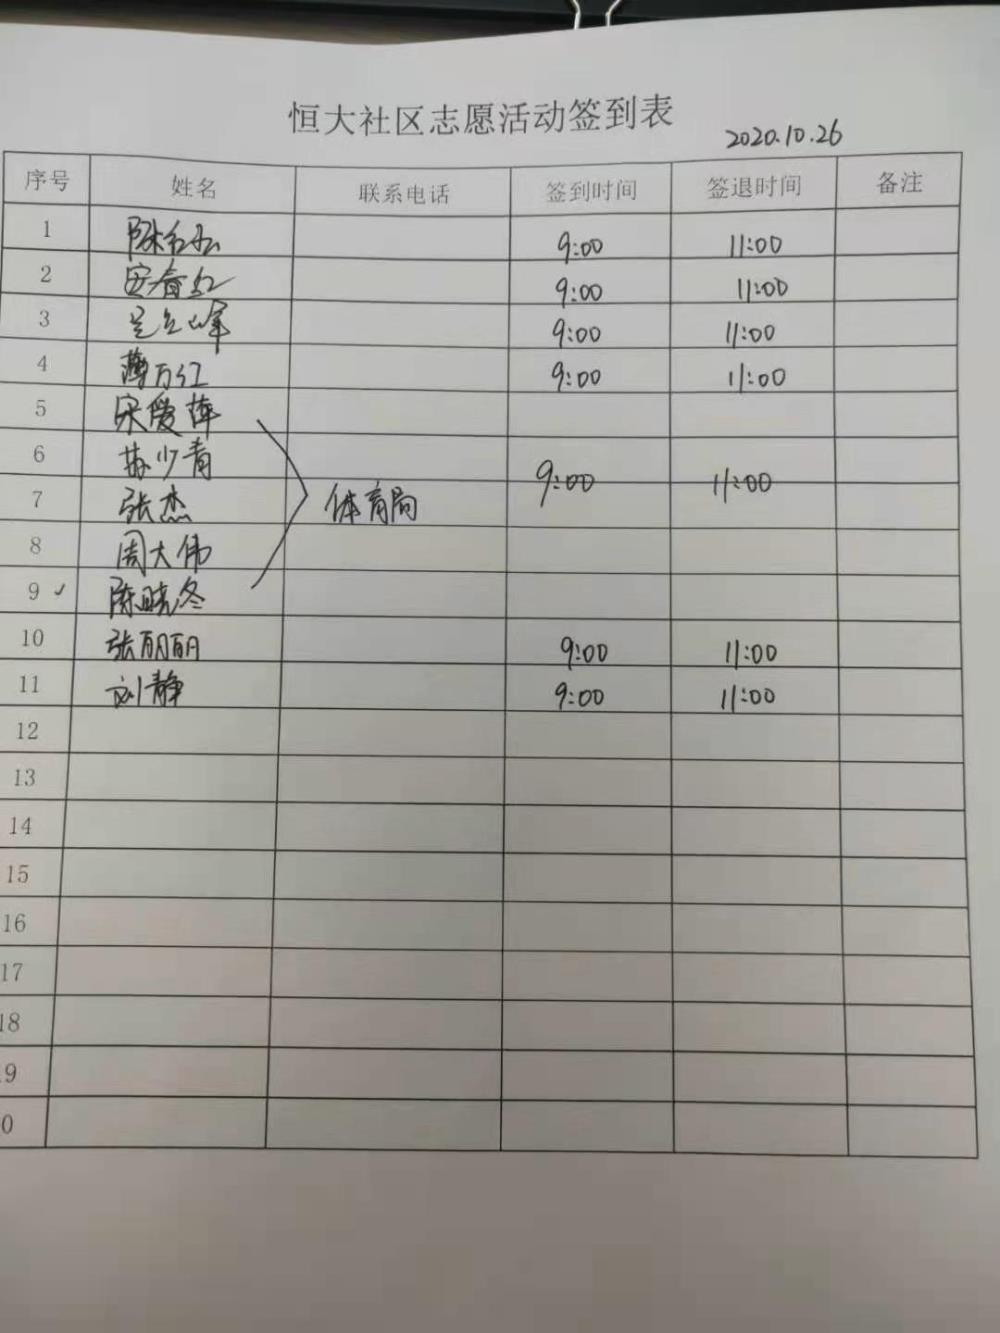 恒大社区志愿活动签到表
2020.10.26
序号 姓名 联系电话 签到时间 签退时间 备注
1 9:00 11:00
2 安春红 9:00 11:00
3 9:00 11:00
4 薄万红 9:00 11:00
5 宋爱萍
6 苏少青 9:00 11:00
7 张杰 体育局
8 周大伟
9 ✓ 陈晓冬
10 张丽丽 9:00 11:00
11 刘静 9:00 11:00
12
13
14
15
16
17
18
9
0